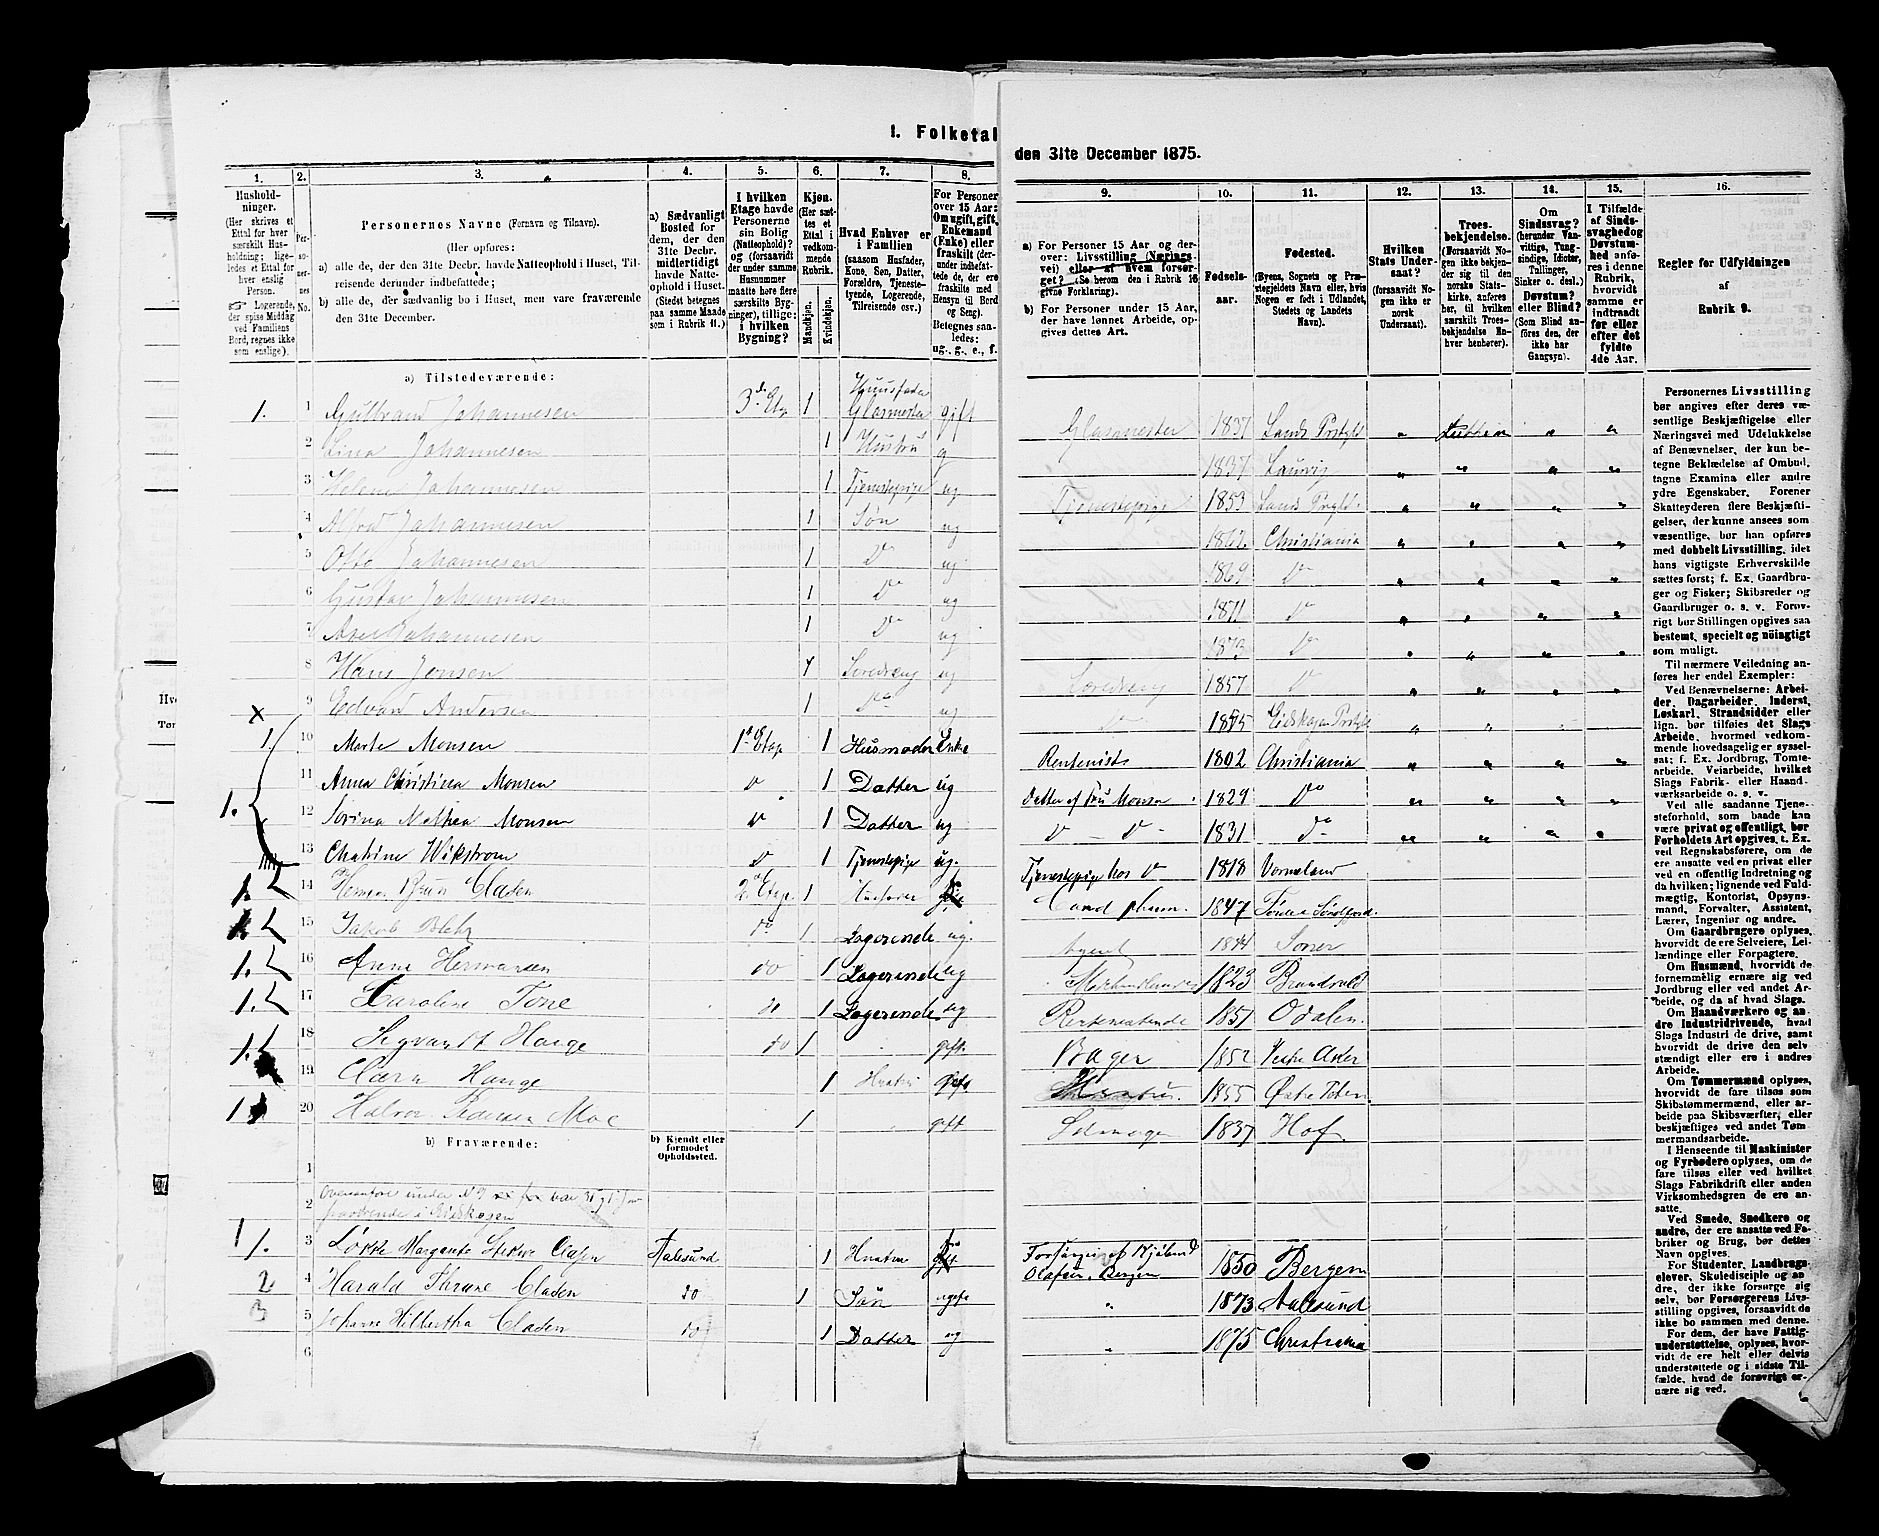 I. Folketal
den 31te December 1875.
1. 2. 3. 4. 5. 6. 7. 8.
Husholdninger. (Her skrives et Ettal for hver særskilt Husholdning; ligeledes et Ettal for hver enslig Person. Logerende, der spise Middag ved Familiens Bord, regnes ikke som enslige).
Personernes No.
Personernes Navne (Fornavn og Tilnavn).
(Her opføres:
a) alle de, der den 31te Decbr. havde Natteophold i Huset, Tilreisende derunder indbefattede;
b) alle de, der sædvanlig bo i Huset, men vare fraværende den 31te December.
a) Sædvanligt Bosted for dem, der den 31te Decbr. midlertidigt havde Natteophold i Huset. (Stedet betegnes paa samme Maade som i Rubrik 11.)
I hvilken Etage havde Personerne sin Bolig (Natteophold)? og (forsaavidt der under samme Husnummer maatte høre flere særskilte Bygninger), tillige: i hvilken Bygning?
Kjøn. (Her sættes et Ettal i vedkommende Rubrik.
Mandkjøn. Kvindekjøn.
Hvad Enhver er i Familien (saasom Husfader, Kone, Søn, Datter, Forældre, Tjenestetyende, Logerende, Tilreisende osv.)
For Personer over 15 Aar: Om ugift, gift, Enkemand (Enke) eller fraskilt (derunder indbefattede de, der ere fraskilte med Hensyn til Bord og Seng). Betegnes saaledes: ug., g., e., f.
9. 10. 11. 12. 13. 14. 15. 16.
a) For Personer 15 Aar og derover: Livsstilling (Næringsvei) eller af hvem forsørget? (Se herom den i Rubrik 16 givne Forklaring).
b) For Personer under 15 Aar, der have lønnet Arbeide, opgives dettes Art.
Fødselsaar.
Fødested. (Byens, Sognets og Præstegjeldets Navn eller, hvis Nogen er født i Udlandet, Stedets og Landets Navn).
Hvilken Stats Undersaat? (forsaavidt Nogen ikke er norsk Undersaat).
Troesbekjendelse. (Forsaavidt Nogen ikke bekjender sig til den norske Statskirke, anføres her, til hvilken særskilt Troesbekjendelse Enhver henhører).
Om Sindssvag? (herunder Vanvittige, Tungsindige, Idioter, Tallinger, Sinker o. desl.) Døvstum? eller Blind? (Som Blind anføres den, der ikke har Gangsyn).
I Tilfælde af Sindssvaghed og Døvstumhed anføres i denne Rubrik, hvorvidt samme er indtraadt før eller efter det fyldte 4de Aar.
Regler for Udfyldningen af Rubrik 9.
a) Tilstedeværende:
1. 1 Gulbrand Johannesen 3d. Etg 1 Huusfader Glasmester gift Glasmester 1837 Lands Prstgld " Luthran " "
2 Lina Johannesen 1 Hustru g 1837 Laurvig " " " "
3 Helene Johannesen 1 Tjenestepige ug Tjenestepige 1853 Lands Prgld. " " " "
4 Alfred Johannesen 1 Søn ug Christiania " " " "
5 Otto Johannesen 1 Do ug 1869 Do " " " "
6 Gustav Johannesen 1 Do ug 1871 Do " " " "
7 Axel Johannesen 1 Do ug 1873 Do " " " "
8 Hans Jensen 1 Læredreng ug Læredreng 1857 Do " " " "
x 9 Edvard Andersen 1 Do ug Do Eidskogen Prstgld " " " "
1. 10 Marte Monsen 1ste Etage 1 Husmoder Enke Rentenist 1802 Christiania " " " "
11 Anna Christina Monsen Do 1 Datter ug Datter af Fru Monsen 1829 Do " " " "
1. 12 Sorina Nathea Monsen Do 1 Datter ug Do — Do 1831 Do " " " "
13 Chatrine Wikstrom Do 1 Tjenestepige ug. Tjenestepige hos Do 1818 Vermeland
1. 14 Clasen 2. Etage 1 Husfader Cand pharm. 1847
15 Jakob Blehr do 1 Logerende ug. Agent
1. 16 Anne Hermansen do 1 Logerende ug 1823 Brandvold
1. 17 Karoline Tone do 1 Logerende ug 1851 Odalen.
1. 18 Sigvardt Hauge do 1 gift. Bager 1852 Vestre Aker
19 Clara Hauge 1 Hustru Gift Hustru. 1855 Østre Toten
1 20 Halvor Pedersen Moe 1 gift 1837 Hof
b) Fraværende:
b) Kjendt eller formodet Opholdssted.
1
2 Ovenanførte under No 9
fraværende i Eidskogen
1/. 3 Løkke Margarete Clasen Aalesund 1 Hustru Forsørges af Olafsen, Bergen 1850 Bergen
2 4 Harald Thrane Claden do 1 Søn ugift " 1873 Aalesund
3 5 Johanne Hilbertha Claden do 1 Datter ug " 1875 Christiania
6
Personernes Livsstilling bør angives efter deres væsentlige Beskjæftigelse eller Næringsvei med Udelukkelse af Benævnelser, der kun betegne Beklædelse af Ombud, tagne Examina eller andre ydre Egenskaber. Forener Skatteyderen flere Beskjæftigelser, der kunne ansees som væsentlige, bør han opføres med dobbelt Livsstilling, idet hans vigtigste Erhvervskilde sættes først; f. Ex. Gaardbruger og Fisker; Skibsreder og Gaardbruger o. s. v. Forøvrigt bør Stillingen opgives saa bestemt, specielt og nöiagtigt som muligt.
Til nærmere Veiledning anføres her endel Exempler:
Ved Benævnelserne: Arbeider, Dagarbeider, Inderst, Løskarl, Strandsidder eller lign. bør tilføies det Slags Arbeide, hvormed vedkommende hovedsagelig er sysselsat; f. Ex. Jordbrug, Tomtearbeide, Veiarbeide, hvilket Slags Fabrik- eller Haandværksarbeide o. s. v.
Ved alle saadanne Tjenesteforhold, som baade kan være privat og offentligt, bør Forholdets Art opgives, t. Ex. ved Regnskabsførere, om de ere ansatte ved en privat eller ved en offentlig Indretning og da hvilken; ligesaa ved Fuldmægtig, Kontorist, Opsynsmand, Forvalter, Assistent, Lærer, Ingeniør og andre.
Om Gaardbrugere oplyses, hvorvidt de ere Selveiere, Leilændinge eller Forpagtere.
Om Husmænd, hvorvidt de fornemmelig ernære sig ved Jordbrug eller ved andet Arbeide, og da af hvad Slags.
Om Haandværkere og andre Industridrivende, hvad Slags Industri de drive, samt hvorvidt de drive den selvstændigt eller ere i andres Arbeide.
Om Tømmermænd oplyses, hvorvidt de fare tilsøs som Skibstømmermænd, eller arbeide paa Skibsværfter, eller beskjæftiges ved andet Tømmermandsarbeide.
I Henseende til Maskinister og Fyrbødere oplyses, om de fare tilsøs eller ved hvilket Slags Fabrikdrift eller anden Virksomhedsgren de ere ansatte.
Ved Smede, Snedkere og andre, der ere ansatte ved Fabriker og Brug, bør dettes Navn opgives.
For Studenter, Landbrugselever, Skoledisciple og andre, der ikke forsørge sig selv, bør Forsørgerens Livsstilling opgives, forsaavidt de ikke bo sammen med denne.
For dem, der have Fattigunderstøttelse, oplyses, hvorvidt de ere helt eller delvis understøttede og i sidste Tilfælde, hvad de forøvrigt ernære sig ved.